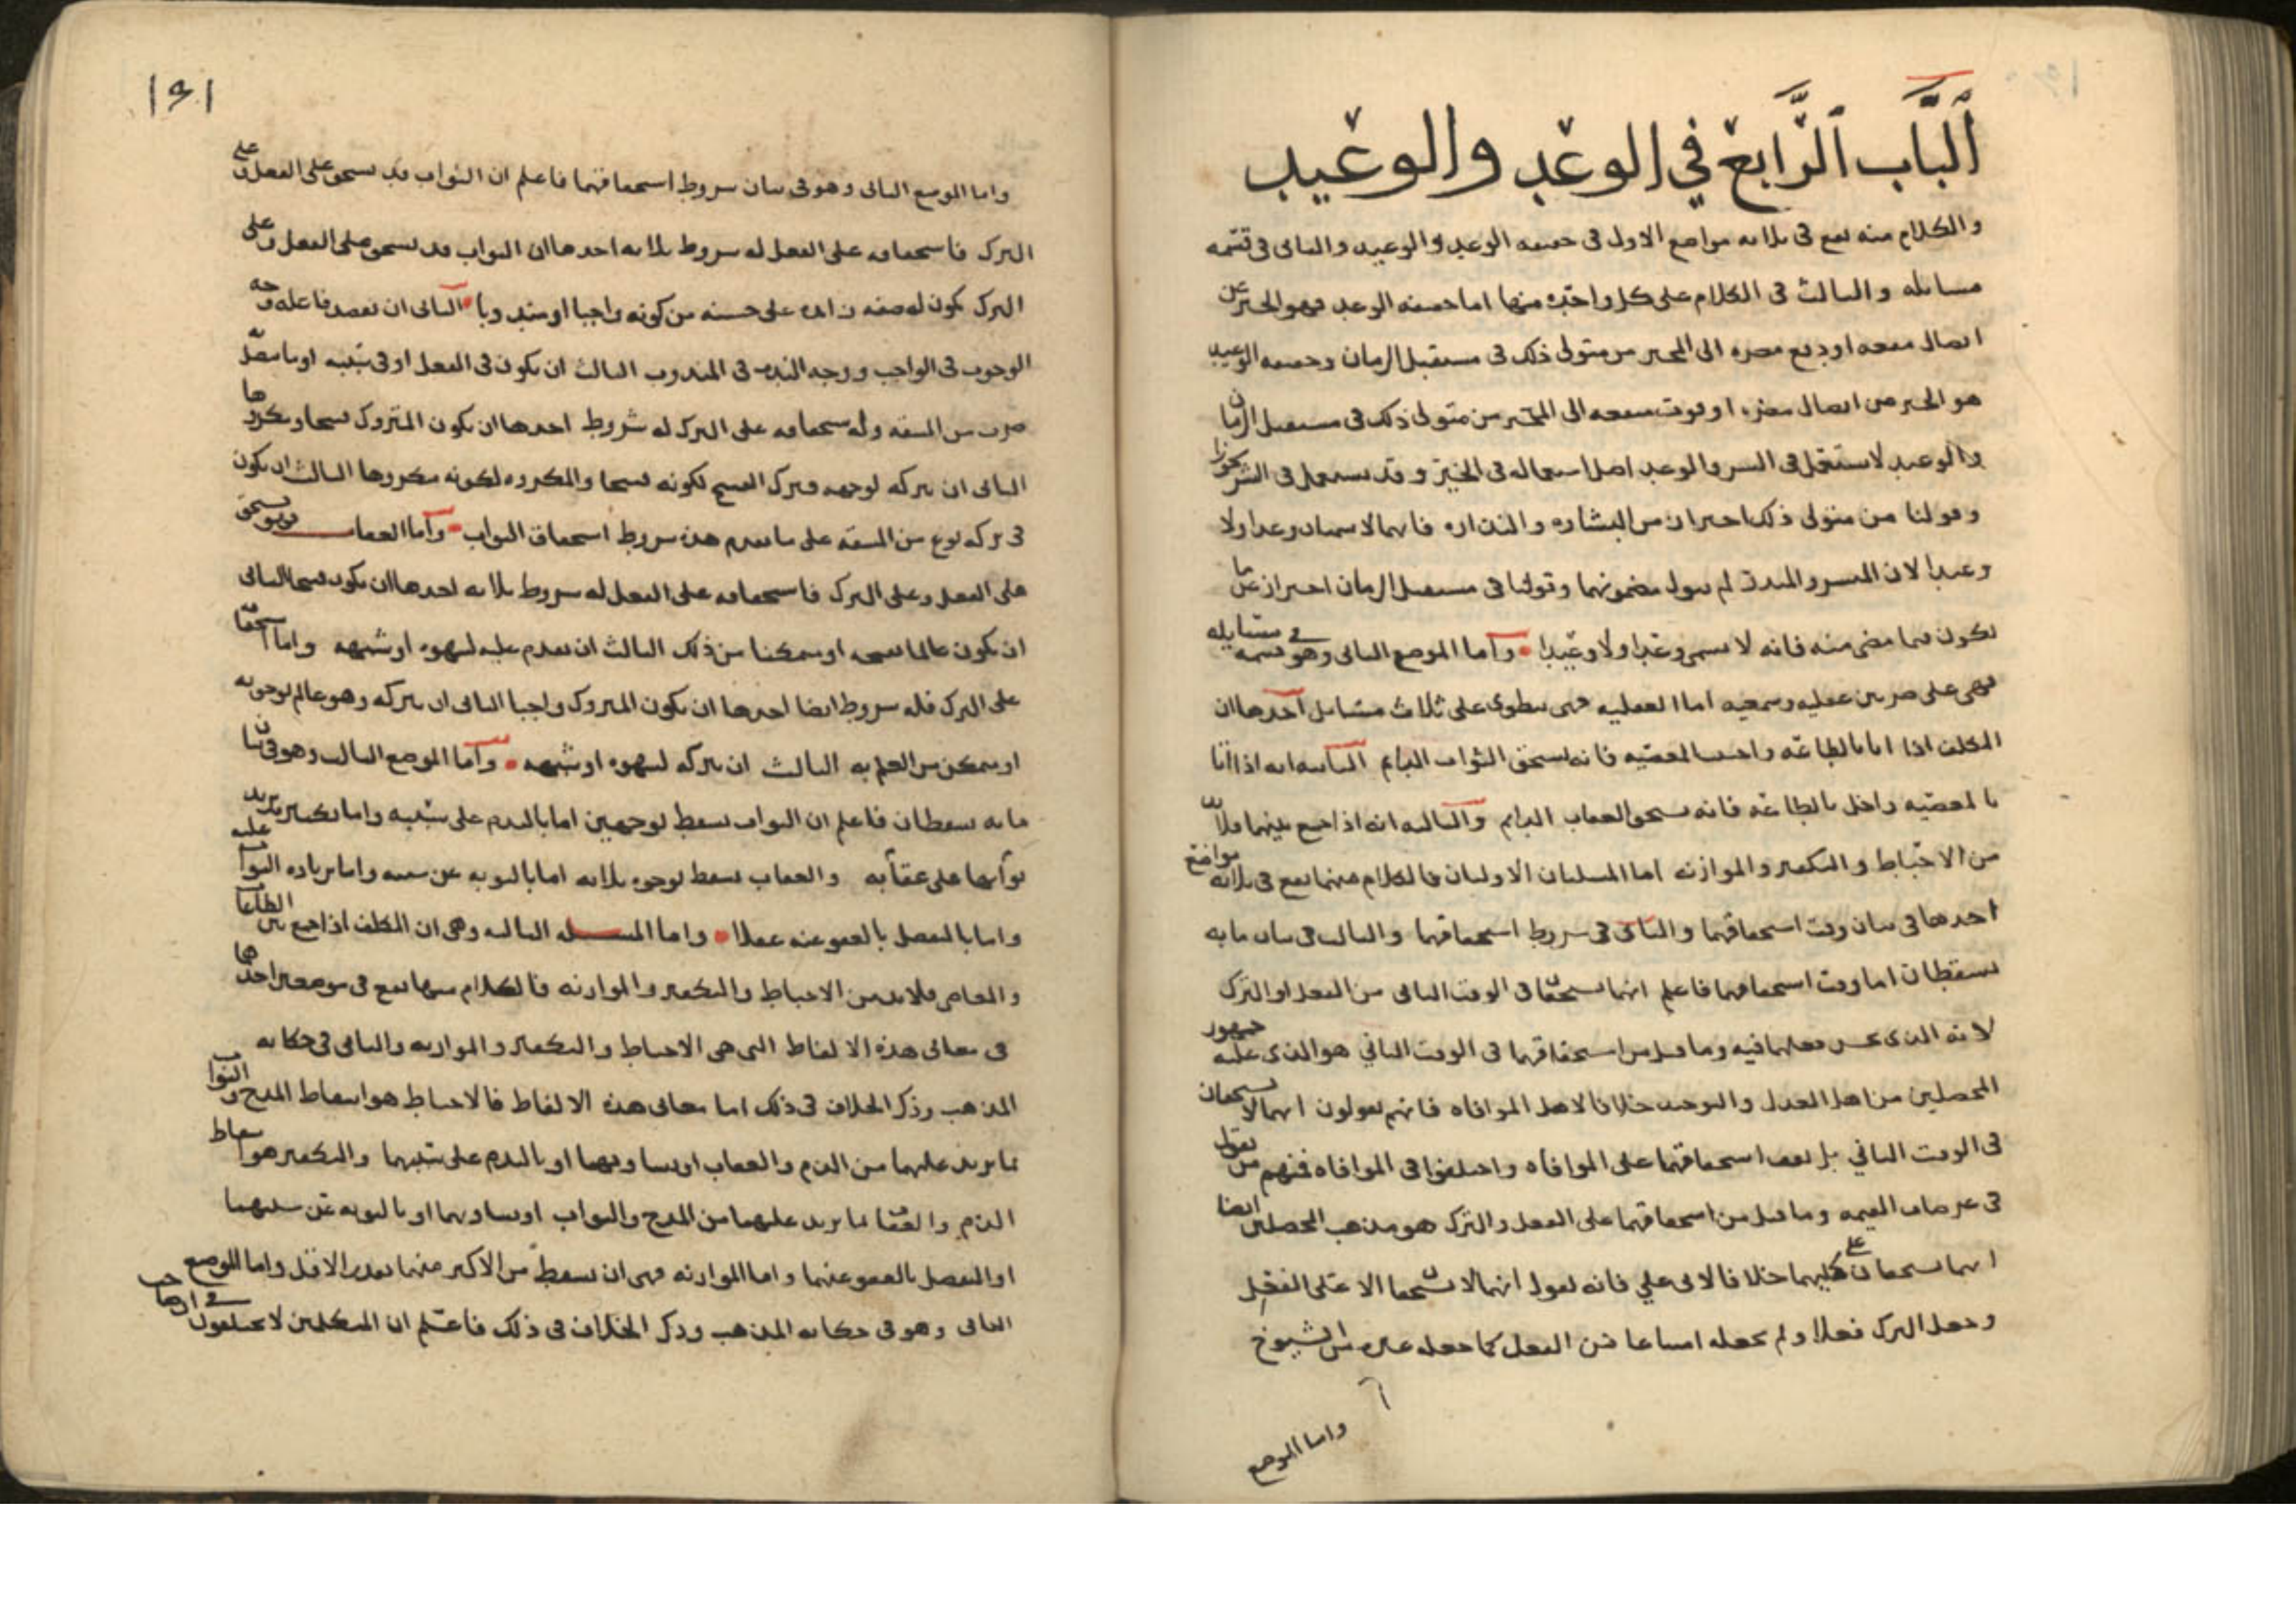 الباب الرابع في الوعد والوعيد
والكلام منه يقع في ثلاثة مواضع الاول في حقيقة الوعد والوعيد والثاني في قسمة
مسائله والثالث في الكلام على كل واحدة منها اما حقيقة الوعد فهو الخبر عن
ايصال منفعة او دفع مضرة الى المخبر من متولي ذلك في مستقبل الزمان وحقيقة الوعيد
هو الخبر عن ايصال مضرة او فوت منفعة الى المخبر من متولي ذلك في مستقبل الزمان
والوعيد لا يستعمل في الشر والوعد اصل استعماله في الخير وقد يستعمل في الشر تجوزا
وقولنا من متولي ذلك احتراز من البشارة والنذارة فانهما لا يسميان وعدا ولا
وعيدا لان المبشر والمنذر لم يتول مضمونهما وقولنا في مستقبل الزمان احتراز عما
يكون فيما مضى منه فانه لا يسمى وعدا ولا وعيدا واما الموضع الثاني وهو في قسمة مسايله
فهي على ضربين عقلية وسمعية اما العقلية فهي تنطوي على ثلاث مسائل احدها ان
المكلف اذا اتا بالطاعة واجتنب المعصية فانه يستحق الثواب الدايم الثانية انه اذا اتا
بالمعصية واخل بالطاعة فانه يستحق العقاب الدايم والثالثة انه اذا جمع بينهما فلا بد
من الاحباط والتكفير والموازنة اما المسلتان الاوليان فالكلام منهما يقع في ثلاثة مواضع
احدها في بيان وقت استحقاقهما والثاني في شروط استحقاقهما والثالث في بيان ما به
يسقطان اما وقت استحقاقهما فاعلم انهما يستحقان في الوقت الثاني من الفعل او الترك
لانه الذي يحسن فعلهما فيه وما قيل من استحقاقهما في الوقت الثاني هو الذي عليه جمهور
المحصلين من اهل العدل والتوحيد خلافا لاهل الموافاة فانهم يقولون انهما لا يستحقان
في الوقت الثاني بل يقف استحقاقهما على الموافاة واختلفوا في الموافاة فمنهم من يقول
في عرصات القيمة وما قيل من استحقاقهما على الفعل والترك هو مذهب المحصلين ايضا
انهما يستحقان على كليهما خلافا لابي علي فانه يقول انهما لا يستحقان الا على الفعل
وجعل الترك فعلا ولم يجعله امتناعا من الفعل كما جعله غيره من الشيوخ
واما الموضع
١٩١
واما الموضع الثاني وهو في بيان شروط استحقاقهما فاعلم ان الثواب قد يستحق على الفعل وعلى
الترك فاستحقاقه على الفعل له شروط ثلاثة احدها ان الثواب قد يستحق على الفعل وعلى
الترك يكون له صفة زايدة على حسنه من كونه واجبا او مندوبا الثاني ان يقصد فاعله وجه
الوجوب في الواجب ووجه الندب في المندوب الثالث ان يكون في الفعل او في سببه او ما يتصل به
ضرب من المشقة واستحقاقه على الترك له شروط احدها ان يكون المتروك قبيحا او مكروها
الثاني ان يتركه لوجهه فيترك القبيح لكونه قبيحا والمكروه لكونه مكروها الثالث ان يكون
في تركه نوع من المشقة على ما تقدم هذه شروط استحقاق الثواب واما العقاب فهو يستحق
على الفعل وعلى الترك فاستحقاقه على الفعل له شروط ثلاثة احدها ان يكون قبيحا الثاني
ان يكون عالما بقبحه او متمكنا من ذلك الثالث ان يقدم عليه لشهوة او شبهة واما استحقاقه
على الترك فله شروط ايضا احدها ان يكون المتروك واجبا الثاني ان يتركه وهو عالم بوجوبه
او متمكن من العلم به الثالث ان يتركه لشهوة او شبهة واما الموضع الثالث وهو في بيان
ما به يسقطان فاعلم ان الثواب يسقط بوجهين اما بالندم على سببه واما بكبيرة يزيد
عقابها على ثوابه والعقاب يسقط بوجوه ثلاثة اما بالتوبة عن سببه واما بزيادة الثواب عليه
واما بالتفضل بالعفو عنه عقلا واما المسلة الثالثة وهي ان المكلف اذا جمع بين الطاعات
والمعاصي فلا بد من الاحباط والتكفير والموازنة فالكلام منها يقع في موضعين احدهما
في معاني هذه الالفاظ التي هي الاحباط والتكفير والموازنة والثاني في حكاية
المذهب وذكر الخلاف في ذلك اما معاني هذه الالفاظ فالاحباط هو اسقاط المدح والثواب
بما يزيد عليهما من الذم والعقاب او يساويهما او بالندم على سببهما والتكفير هو اسقاط
الذم والعقاب بما يزيد عليهما من المدح والثواب او يساويهما او بالتوبة عن سببهما
او التفضل بالعفو عنهما واما الموازنة فهي ان يسقط من الاكبر منهما بقدر الاقل واما الموضع
الثاني وهو في حكاية المذهب وذكر الخلاف في ذلك فاعلم ان المتكلمين لا يختلفون في ان صاحب